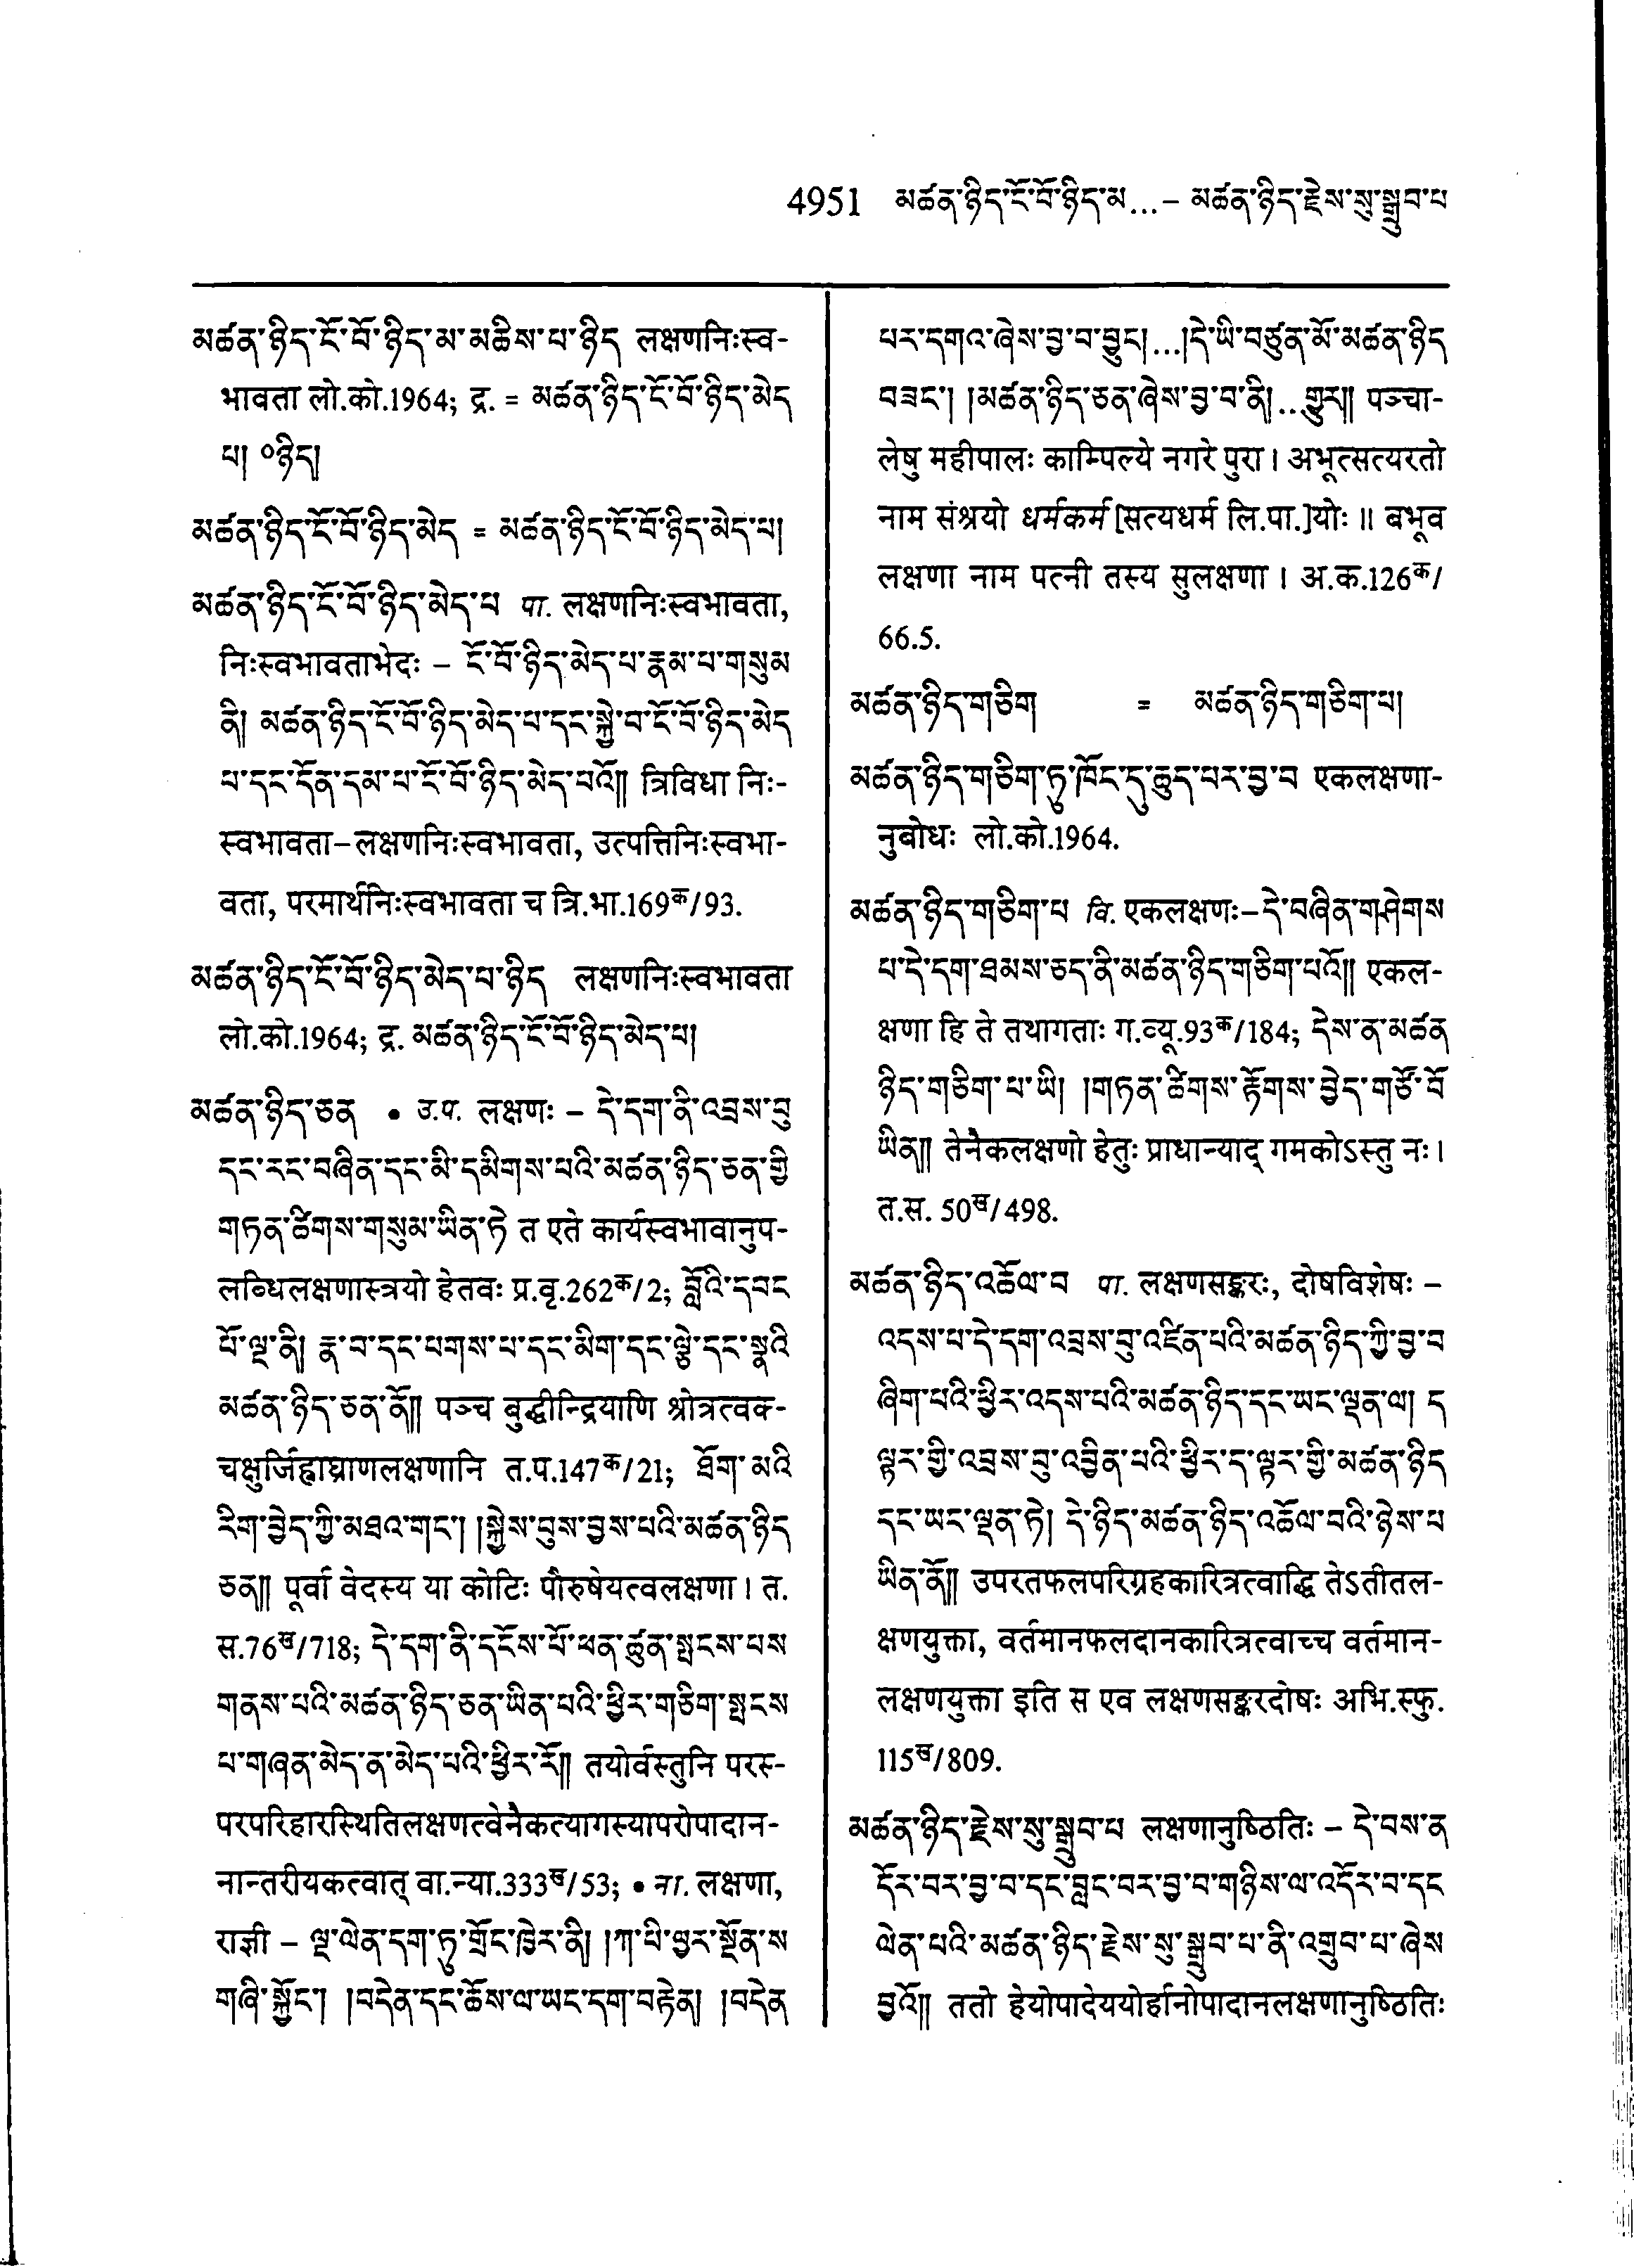 4951 མཚན་ཉིད་ངོ་བོ་ཉིད་མ...– མཚན་ཉིད་རྗེས་སུ་སྒྲུབ་པ
མཚན་ཉིད་ངོ་བོ་ཉིད་མ་མཆིས་པ་ཉིད लक्षणनिःस्व-
भावता लो.को.1964; द्र. = མཚན་ཉིད་ངོ་བོ་ཉིད་མེད
པ། ०ཉིད།
མཚན་ཉིད་ངོ་བོ་ཉིད་མེད = མཚན་ཉིད་ངོ་བོ་ཉིད་མེད་པ།
མཚན་ཉིད་ངོ་བོ་ཉིད་མེད་པ पा. लक्षणनिःस्वभावता,
निःस्वभावताभेदः – ངོ་བོ་ཉིད་མེད་པ་རྣམ་པ་གསུམ
ནི། མཚན་ཉིད་ངོ་བོ་ཉིད་མེད་པ་དང་སྐྱེ་བ་ངོ་བོ་ཉིད་མེད
པ་དང་དོན་དམ་པ་ངོ་བོ་ཉིད་མེད་པའོ༎ त्रिविधा निः-
स्वभावता–लक्षणनिःस्वभावता, उत्पत्तिनिःस्वभा-
वता, परमार्थनिःस्वभावता च त्रि.भा.169क/93.
མཚན་ཉིད་ངོ་བོ་ཉིད་མེད་པ་ཉིད लक्षणनिःस्वभावता
लो.को.1964; द्र. མཚན་ཉིད་ངོ་བོ་ཉིད་མེད་པ།
མཚན་ཉིད་ཅན • उ.प. लक्षणः – དེ་དག་ནི་འབྲས་བུ
དང་རང་བཞིན་དང་མི་དམིགས་པའི་མཚན་ཉིད་ཅན་གྱི
གཏན་ཚིགས་གསུམ་ཡིན་ཏེ त एते कार्यस्वभावानुप-
लब्धिलक्षणास्त्रयो हेतवः प्र.वृ.262क/2; བློའི་དབང
པོ་ལྔ་ནི། རྣ་བ་དང་པགས་པ་དང་མིག་དང་ལྕེ་དང་སྣའི
མཚན་ཉིད་ཅན་ནོ༎ पञ्च बुद्धीन्द्रियाणि श्रोत्रत्वक्-
चक्षुर्जिह्वाघ्राणलक्षणानि त.प.147क/21; ཐོག་མའི
རིག་བྱེད་ཀྱི་མཐའ་གང་། །སྐྱེས་བུས་བྱས་པའི་མཚན་ཉིད
ཅན༎ पूर्वा वेदस्य या कोटिः पौरुषेयत्वलक्षणा । त.
स.76ख/718; དེ་དག་ནི་དངོས་པོ་ཕན་ཚུན་སྤངས་པས
གནས་པའི་མཚན་ཉིད་ཅན་ཡིན་པའི་ཕྱིར་གཅིག་སྤངས
པ་གཞན་མེད་ན་མེད་པའི་ཕྱིར་རོ༎ तयोर्वस्तुनि परस्-
परपरिहारस्थितिलक्षणत्वेनैकत्यागस्यापरोपादान-
नान्तरीयकत्वात् वा.न्या.333ख/53; • ना. लक्षणा,
राज्ञी – ལྔ་ལེན་དག་ཏུ་གྲོང་ཁྱེར་ནི། །ཀ་པི་ལྱར་སྔོན་ས
གཞི་སྐྱོང་། །བདེན་དང་ཆོས་ལ་ཡང་དག་བརྟེན། །བདེན
པར་དགའ་ཞེས་བྱ་བ་བྱུང།...།དེ་ཡི་བཙུན་མོ་མཚན་ཉིད
བཟང་། །མཚན་ཉིད་ཅན་ཞེས་བྱ་བ་ནི།..གྱུར༎ पञ्चा-
लेषु महीपालः काम्पिल्ये नगरे पुरा । अभूत्सत्यरतो
नाम संश्रयो धर्मकर्म [सत्यधर्म लि.पा.]योः ॥ बभूव
लक्षणा नाम पत्नी तस्य सुलक्षणा । अ.क.126क/
66.5.
མཚན་ཉིད་གཅིག = མཚན་ཉིད་གཅིག་པ།
མཚན་ཉིད་གཅིག་ཏུ་ཁོང་དུ་ཆུད་པར་བྱ་བ एकलक्षणा-
नुबोधः लो.को.1964.
མཚན་ཉིད་གཅིག་པ वि. एकलक्षणः–དེ་བཞིན་གཤེགས
པ་དེ་དག་ཐམས་ཅད་ནི་མཚན་ཉིད་གཅིག་པའོ༎ एकल-
क्षणा हि ते तथागताः ग.व्यू.93क/184; དེས་ན་མཚན
ཉིད་གཅིག་པ་ཡི། །གཏན་ཚིགས་རྟོགས་བྱེད་གཙོ་བོ
ཡིན༎ तेनैकलक्षणो हेतुः प्राधान्याद् गमकोऽस्तु नः ।
त.स. 50ख/498.
མཚན་ཉིད་འཆོལ་བ पा. लक्षणसङ्करः, दोषविशेषः –
འདས་པ་དེ་དག་འབྲས་བུ་འཛིན་པའི་མཚན་ཉིད་ཀྱི་བྱ་བ
ཞིག་པའི་ཕྱིར་འདས་པའི་མཚན་ཉིད་དང་ཡང་ལྡན་ལ། ད
ལྟར་གྱི་འབྲས་བུ་འབྱིན་པའི་ཕྱིར་ད་ལྟར་གྱི་མཚན་ཉིད
དང་ཡང་ལྡན་ཏེ། དེ་ཉིད་མཚན་ཉིད་འཆོལ་བའི་ཉེས་པ
ཡིན་ནོ༎ उपरतफलपरिग्रहकारित्रत्वाद्धि तेऽतीतल-
क्षणयुक्ता, वर्तमानफलदानकारित्रत्वाच्च वर्तमान-
लक्षणयुक्ता इति स एव लक्षणसङ्करदोषः अभि.स्फु.
115ख/809.
མཚན་ཉིད་རྗེས་སུ་སྒྲུབ་པ लक्षणानुष्ठितिः – དེ་བས་ན
དོར་བར་བྱ་བ་དང་བླང་བར་བྱ་བ་གཉིས་ལ་འདོར་བ་དང
ལེན་པའི་མཚན་ཉིད་རྗེས་སུ་སྒྲུབ་པ་ནི་འགྲུབ་པ་ཞེས
བྱའོ༎ ततो हेयोपादेययोर्हानोपादानलक्षणानुष्ठितिः